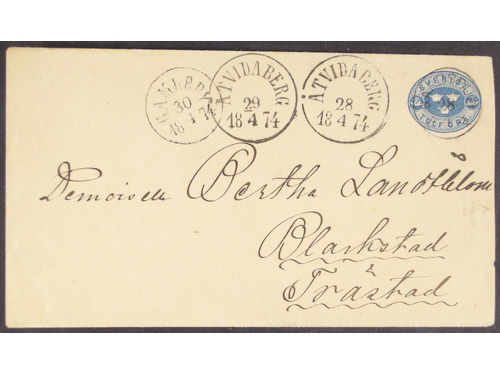 GAMLEBY
30
18 4 74
ÅTVIDABERG
29
18 4 74
ÅTVIDABERG
28
18 4 74
SVERIGE
TOLF ÖRE
Demoiselle Bertha Landtblom
Blackstad
å
Tråstad